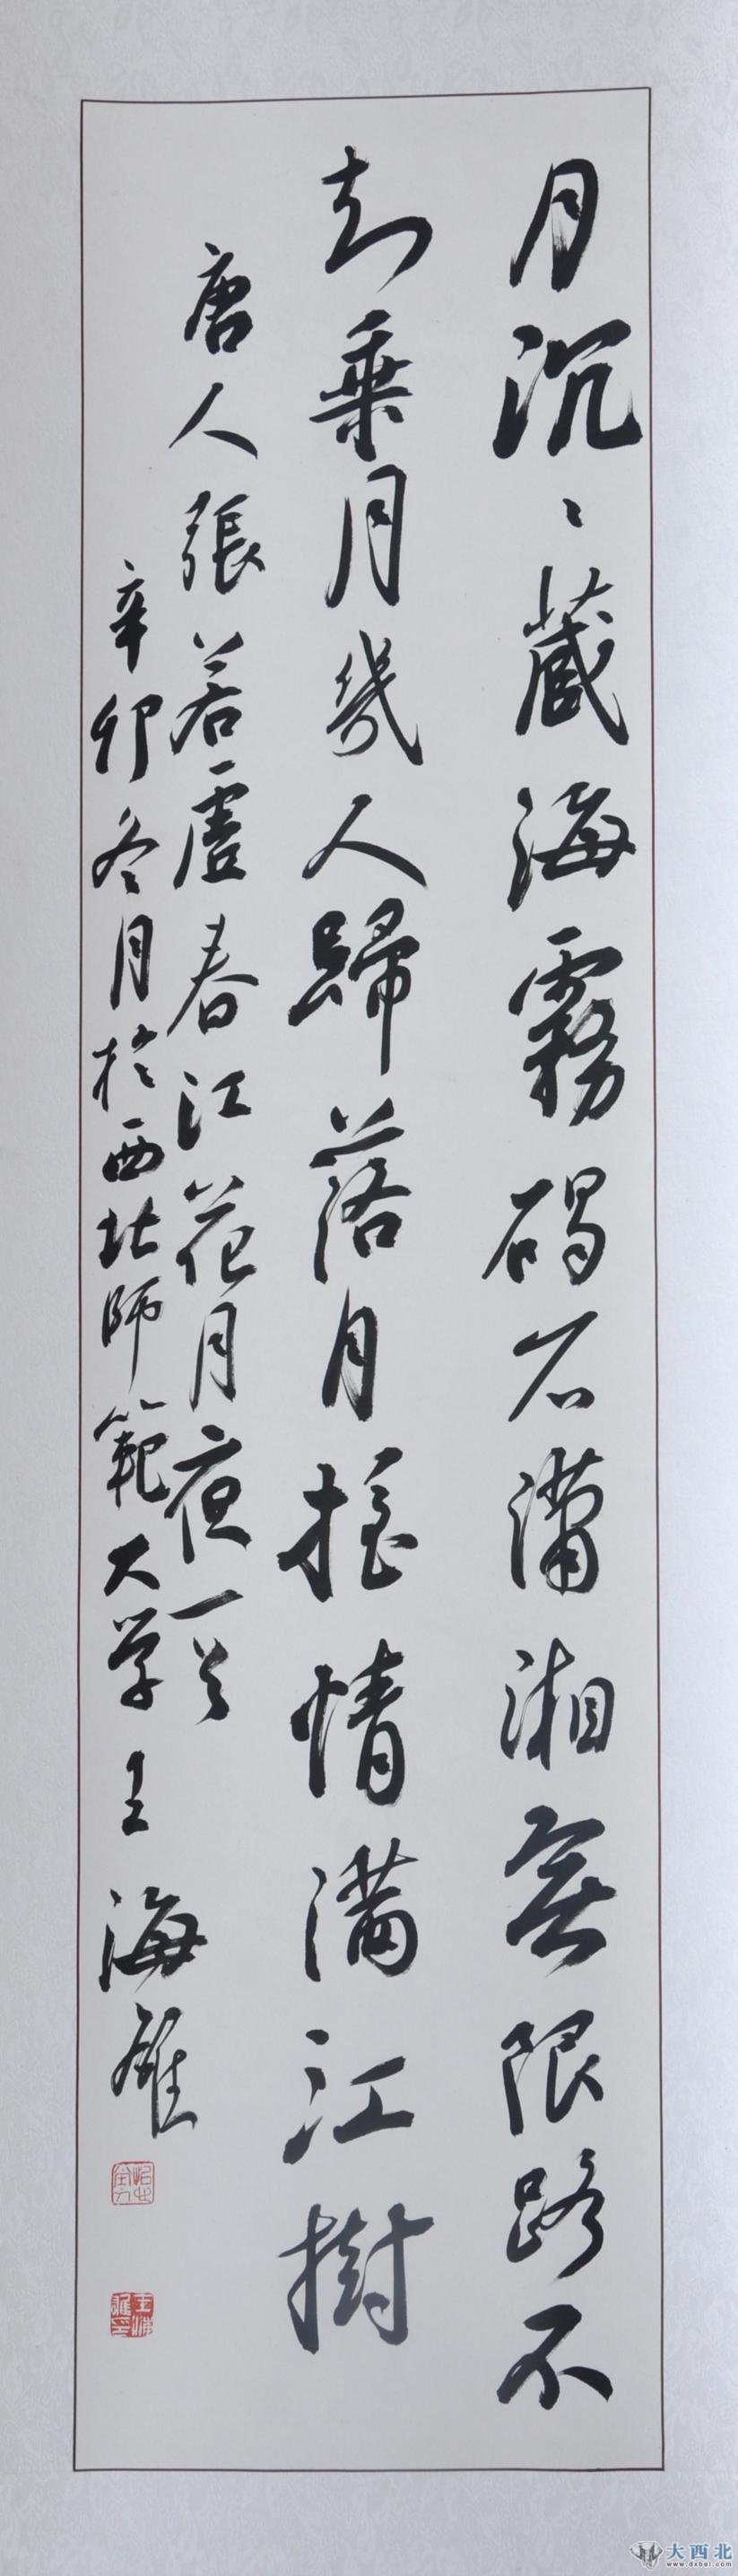 月沉〻藏海霧碣石瀟湘無限路不
知乘月幾人歸落月摇情滿江樹
唐人張若虛春江花月夜一首
辛卯冬月於西北师範大学王海雁
大西北
www.dxbei.com